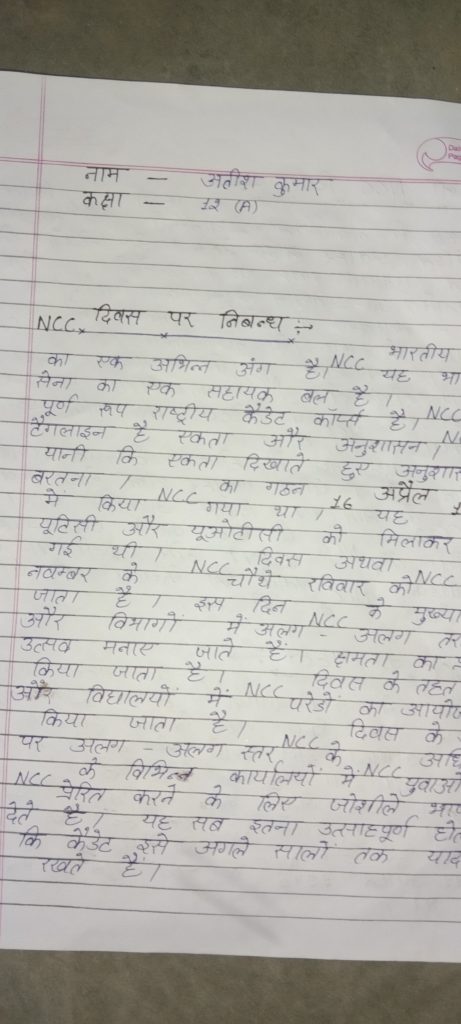 नाम — अतीश कुमार
कक्षा — 12 (A)
NCC दिवस पर निबन्ध :-
NCC भारतीय
का एक अभिन्न अंग है। यह भा
सेना का एक सहायक बल है। NCC
पूर्ण रूप राष्ट्रीय कैडेट कॉर्प्स है।
टैगलाइन है एकता और अनुशासन।
यानी कि एकता दिखाते हुए अनुशास
बरतना। NCC का गठन 16 अप्रैल
में किया गया था। यह
यूटिसी और यूओटीसी को मिलाकर
गई थी। NCC दिवस अथवा NCC
नवम्बर के चौथे रविवार को
जाता है। इस दिन NCC के मुख्या
और विभागों में अलग - अलग तर
उत्सव मनाए जाते हैं। क्षमता का
किया जाता है। NCC दिवस के तहत
और विद्यालयों में परेडों का आयोज
किया जाता है। NCC दिवस के
पर अलग - अलग स्तर के NCC अधि
NCC के विभिन्न कार्यालियों में युवाओं
प्रेरित करने के लिए जोशीले भाष
देते हैं। यह सब इतना उत्साहपूर्ण होत
कि कैडेट इसे अगले सालों तक याद
रखते हैं।